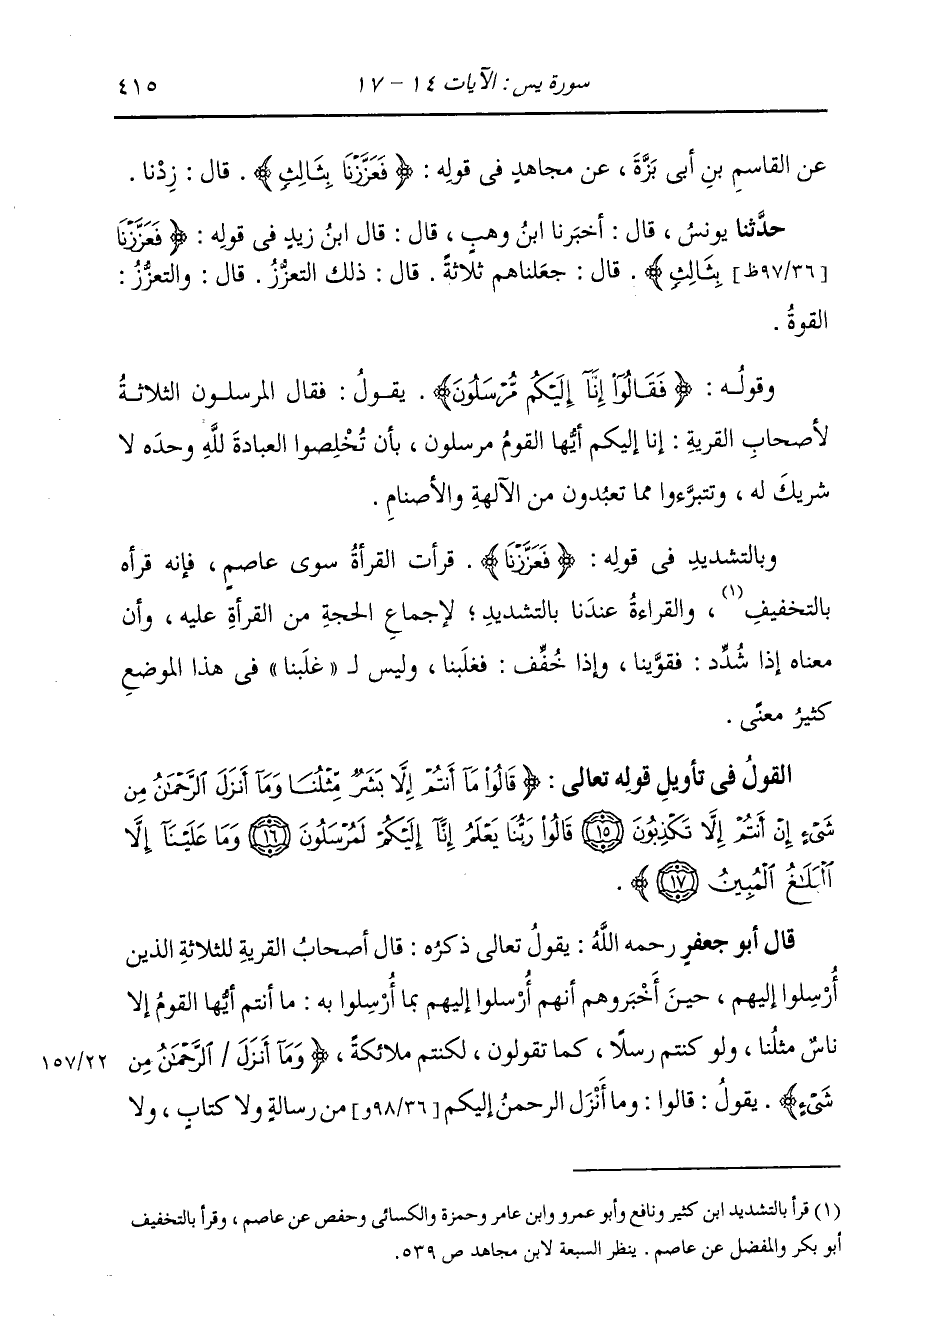 سورة يس : الآيات ١٤ - ١٧
٤١٥
عن القاسمِ بنِ أبى بَزَّةَ ، عن مجاهدٍ فى قولِه : ﴿ فَعَزَّزْنَا بِثَالِثٍ ﴾ . قال : زِدْنا .
حدَّثنا يونسُ ، قال : أخبَرنا ابنُ وهبٍ ، قال : قال ابنُ زيدٍ فى قولِه : ﴿ فَعَزَّزْنَا
[٩٧/٣٦ظ] بِثَالِثٍ ﴾ . قال : جعَلناهم ثلاثةً . قال : ذلك التعزُّزُ . قال : والتعزُّزُ :
القوةُ .
وقولُه : ﴿ فَقَالُوٓا۟ إِنَّآ إِلَيْكُم مُّرْسَلُونَ ﴾ . يقولُ : فقال المرسلون الثلاثةُ
لأصحابِ القريةِ : إنا إليكم أيُّها القومُ مرسلون ، بأن تُخْلِصوا العبادةَ للَّهِ وحدَه لا
شريكَ له ، وتتبرَّءوا مما تعبُدون من الآلهةِ والأصنامِ .
وبالتشديدِ فى قولِه : ﴿ فَعَزَّزْنَا ﴾ . قرأت القرأةُ سوى عاصمٍ ، فإنه قرأه
بالتخفيفِ (١) ، والقراءةُ عندَنا بالتشديدِ ؛ لإجماعِ الحجةِ من القرأةِ عليه ، وأن
معناه إذا شُدِّد : فقوَّينا ، وإذا خُفِّف : فغلَبنا ، وليس لـ « غلَبنا » فى هذا الموضعِ
كثيرُ معنًى .
القولُ فى تأويلِ قولِه تعالى : ﴿ قَالُوا۟ مَآ أَنتُمْ إِلَّا بَشَرٌ مِّثْلُنَا وَمَآ أَنزَلَ ٱلرَّحْمَٰنُ مِن
شَىْءٍ إِنْ أَنتُمْ إِلَّا تَكْذِبُونَ ﴿١٥﴾ قَالُوا۟ رَبُّنَا يَعْلَمُ إِنَّآ إِلَيْكُمْ لَمُرْسَلُونَ ﴿١٦﴾ وَمَا عَلَيْنَآ إِلَّا
ٱلْبَلَٰغُ ٱلْمُبِينُ ﴿١٧﴾ ﴾ .
قال أبو جعفرٍ رحمه اللَّهُ : يقولُ تعالى ذكرُه : قال أصحابُ القريةِ للثلاثةِ الذين
أُرْسِلوا إليهم ، حينَ أَخْبَروهم أنهم أُرْسلوا إليهم بما أُرْسِلوا به : ما أنتم أيُّها القومُ إلا
ناسٌ مثلُنا ، ولو كنتم رسلًا ، كما تقولون ، لكنتم ملائكةً ، ﴿ وَمَآ أَنزَلَ / ٱلرَّحْمَٰنُ مِن
١٥٧/٢٢
شَىْءٍ ﴾ . يقولُ : قالوا : وما أَنْزَل الرحمنُ إليكم [٩٨/٣٦و] من رسالةٍ ولا كتابٍ ، ولا
(١) قرأ بالتشديد ابن كثير ونافع وأبو عمرو وابن عامر وحمزة والكسائى وحفص عن عاصم ، وقرأ بالتخفيف
أبو بكر والمفضل عن عاصم . ينظر السبعة لابن مجاهد ص ٥٣٩.